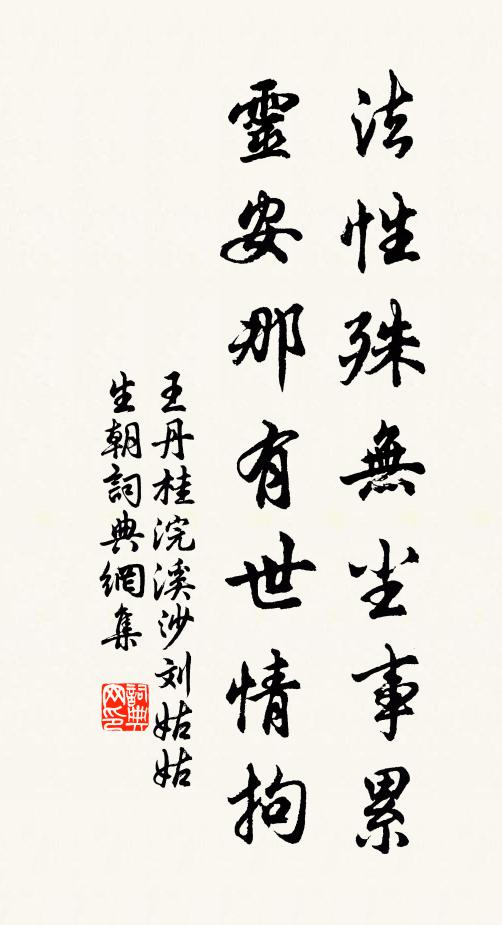 法性殊無尘事累
靈安那有世情拘
王丹桂浣溪沙刘姑姑
生朝詞典網集
詞典网印